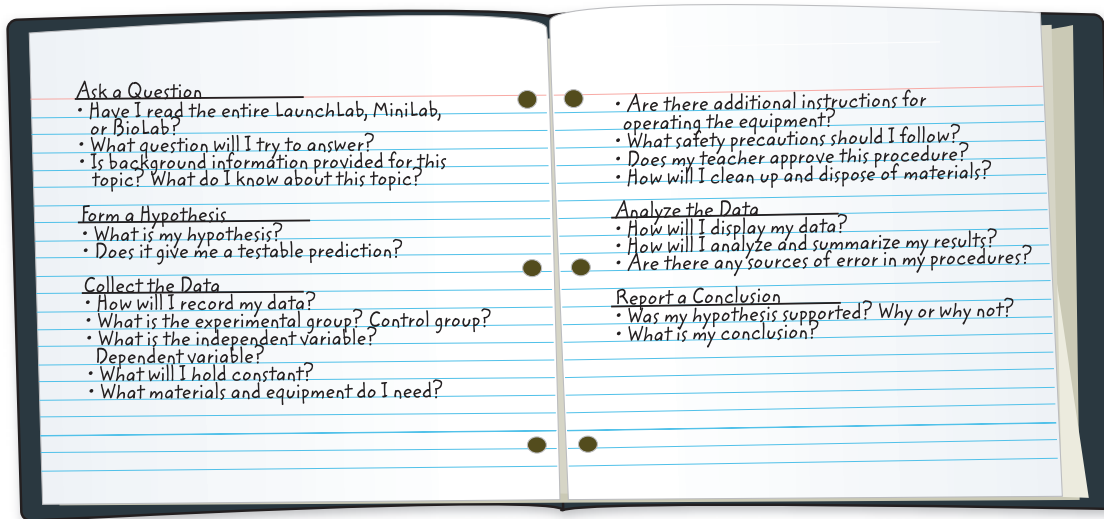 Ask a Question
• Have I read the entire LaunchLab, MiniLab,
or BioLab?
• What question will I try to answer?
• Is background information provided for this
topic? What do I know about this topic?
Form a Hypothesis
• What is my hypothesis?
• Does it give me a testable prediction?
Collect the Data
• How will I record my data?
• What is the experimental group? Control group?
• What is the independent variable?
Dependent variable?
• What will I hold constant?
• What materials and equipment do I need?
• Are there additional instructions for
operating the equipment?
• What safety precautions should I follow?
• Does my teacher approve this procedure?
• How will I clean up and dispose of materials?
Analyze the Data
• How will I display my data?
• How will I analyze and summarize my results?
• Are there any sources of error in my procedures?
Report a Conclusion
• Was my hypothesis supported? Why or why not?
• What is my conclusion?